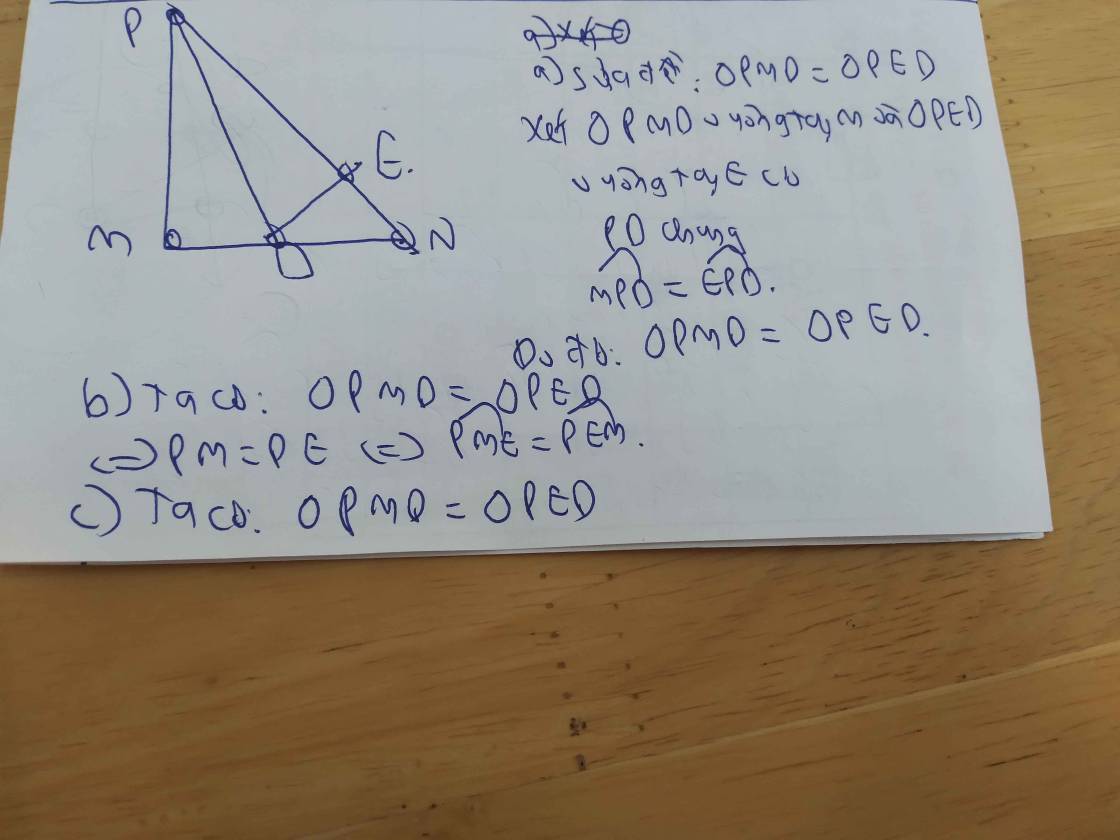 P
E.
M
D
N
a) Xét Δ
a) Sửa đề: ΔPMD = ΔPED
Xét ΔPMD vuông tại M và ΔPED
vuông tại E có
PD chung
MPD = EPD.
Do đó: ΔPMD = ΔPED.
b) Ta có: ΔPMD = ΔPED
<=> PM = PE <=> PME = PEM.
c) Ta có: ΔPMD = ΔPED